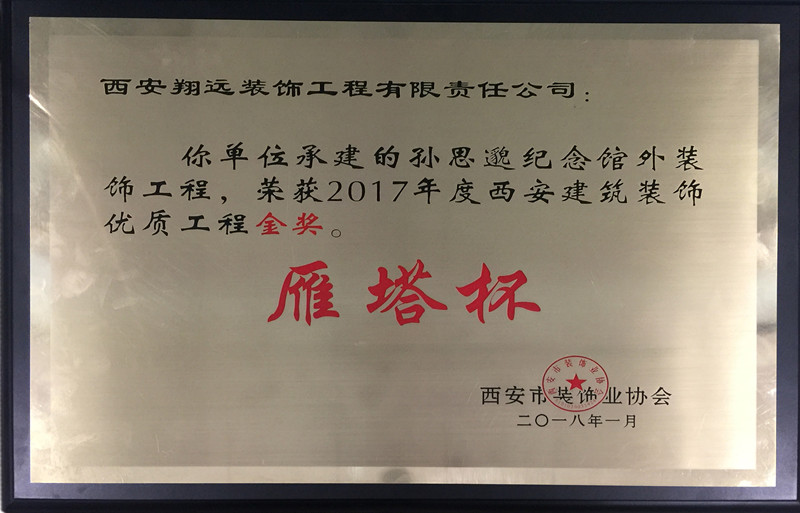 西安翔远装饰工程有限责任公司：
你单位承建的孙思邈纪念馆外装
饰工程，荣获2017年度西安建筑装饰
优质工程金奖。
雁塔杯
西安市装饰业协会
西安市装饰业协会
二〇一八年一月